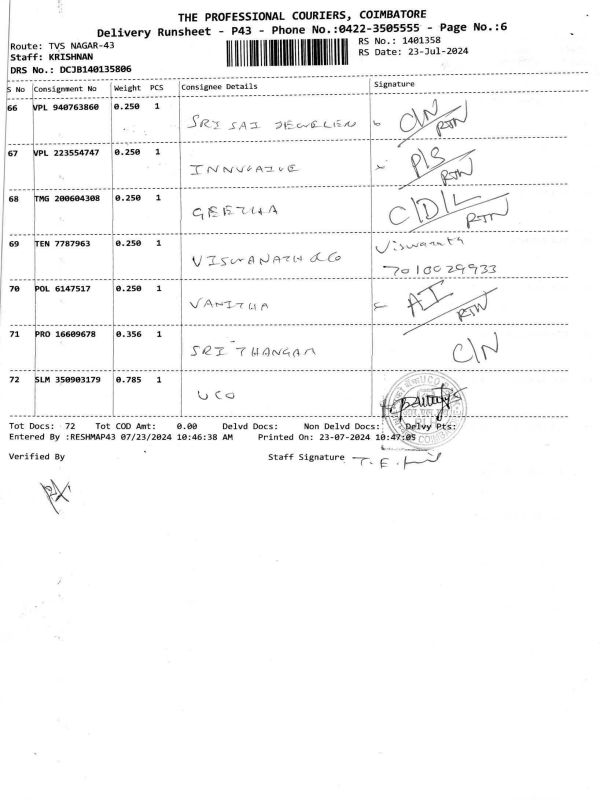 THE PROFESSIONAL COURIERS, COIMBATORE
Delivery Runsheet - P43 - Phone No.:0422-3505555 - Page No.:6
Route: TVS NAGAR-43 RS No.: 1401358
Staff: KRISHNAN RS Date: 23-Jul-2024
DRS No.: DCJB140135806
S No Consignment No Weight PCS Consignee Details Signature
66 VPL 940763860 0.250 1 SRI SAI C/N RTN
67 VPL 223554747 0.250 1 P/S RTN
68 TMG 200604308 0.250 1 GEETHA C/D/L RTN
69 TEN 7787963 0.250 1 VISWANATH & CO
7010029933
70 POL 6147517 0.250 1 VANITHA AI RTN
71 PRO 16609678 0.356 1 SRI THANGAM C/N
72 SLM 350903179 0.785 1 UCO
Tot Docs: 72 Tot COD Amt: 0.00 Delvd Docs: Non Delvd Docs: Delvy Pts:
Entered By :RESHMAP43 07/23/2024 10:46:38 AM Printed On: 23-07-2024 10:47:05
Verified By Staff Signature